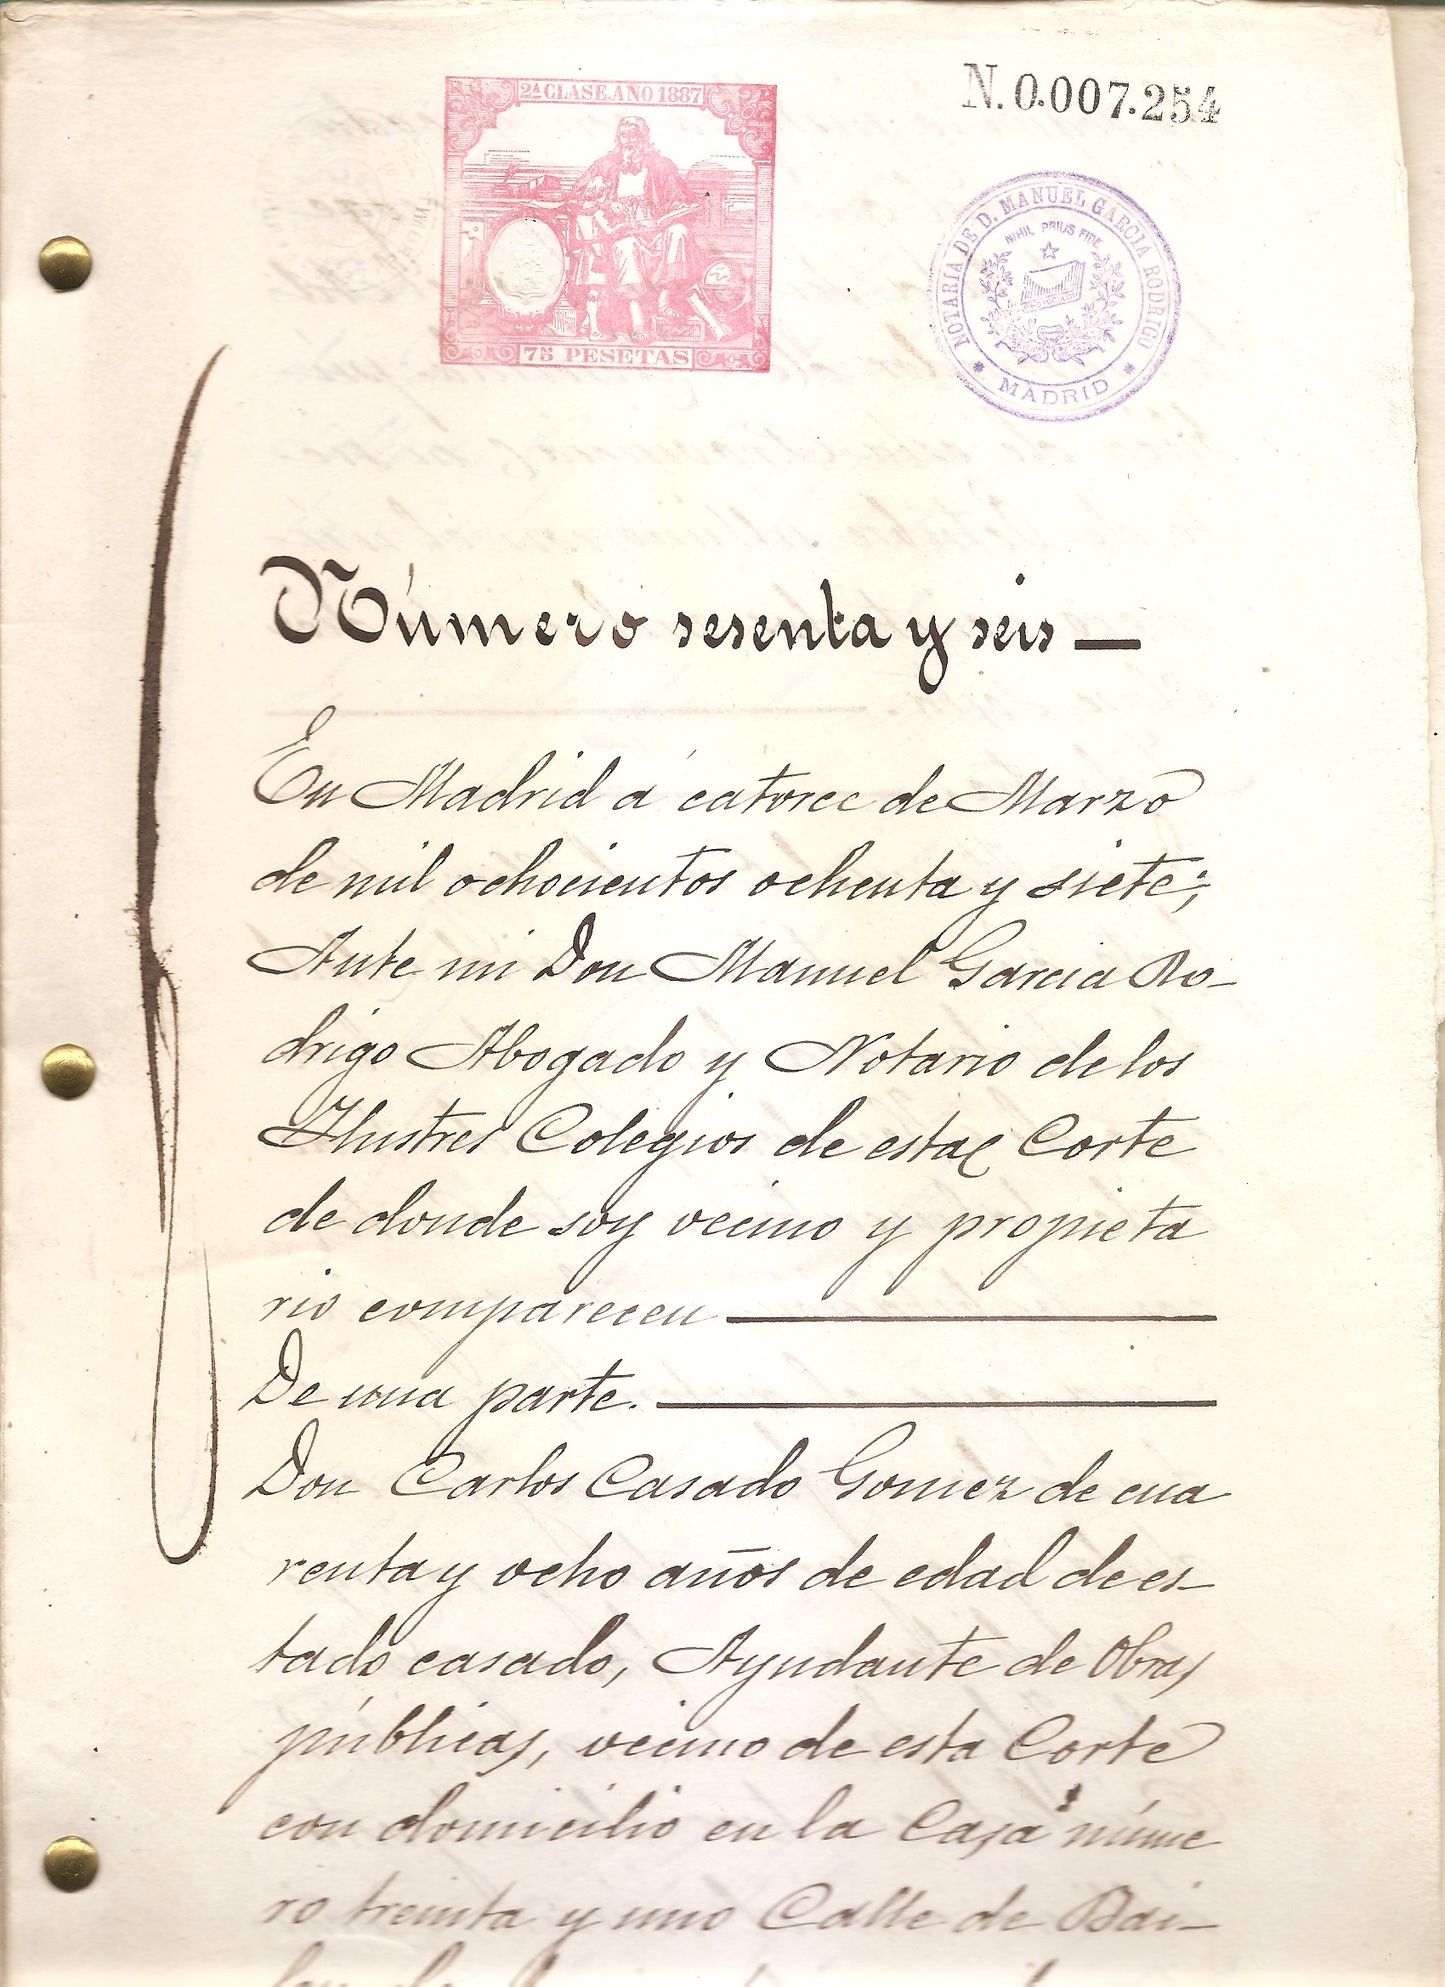 2ª CLASE. AÑO 1887
75 PESETAS
N. 0.007.254
NOTARIA DE D. MANUEL GARCIA RODRIGO
NIHIL PRIUS FIDE
* MADRID *
Número sesenta y seis —
En Madrid á catorce de Marzo
de mil ochocientos ochenta y siete;
Ante mi Don Manuel Garcia Ro-
drigo Abogado y Notario de los
Ilustres Colegios de esta Corte
de donde soy vecino y propieta
rio comparecen
De una parte.
Don Carlos Casado Gomez de cua
renta y ocho años de edad de es-
tado casado, Ayudante de Obras
públicas, vecino de esta Corte
con domicilio en la Casa núme
ro treinta y uno Calle de Bai-